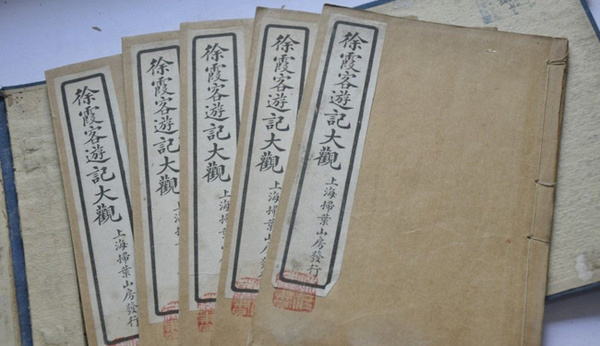 徐霞客遊記大觀
上海掃葉山房發行
徐霞客遊記大觀
上海
徐霞客遊記大觀
上海
徐霞客遊記大觀
上海掃葉山
徐霞客遊記大觀
上海掃葉山房發行